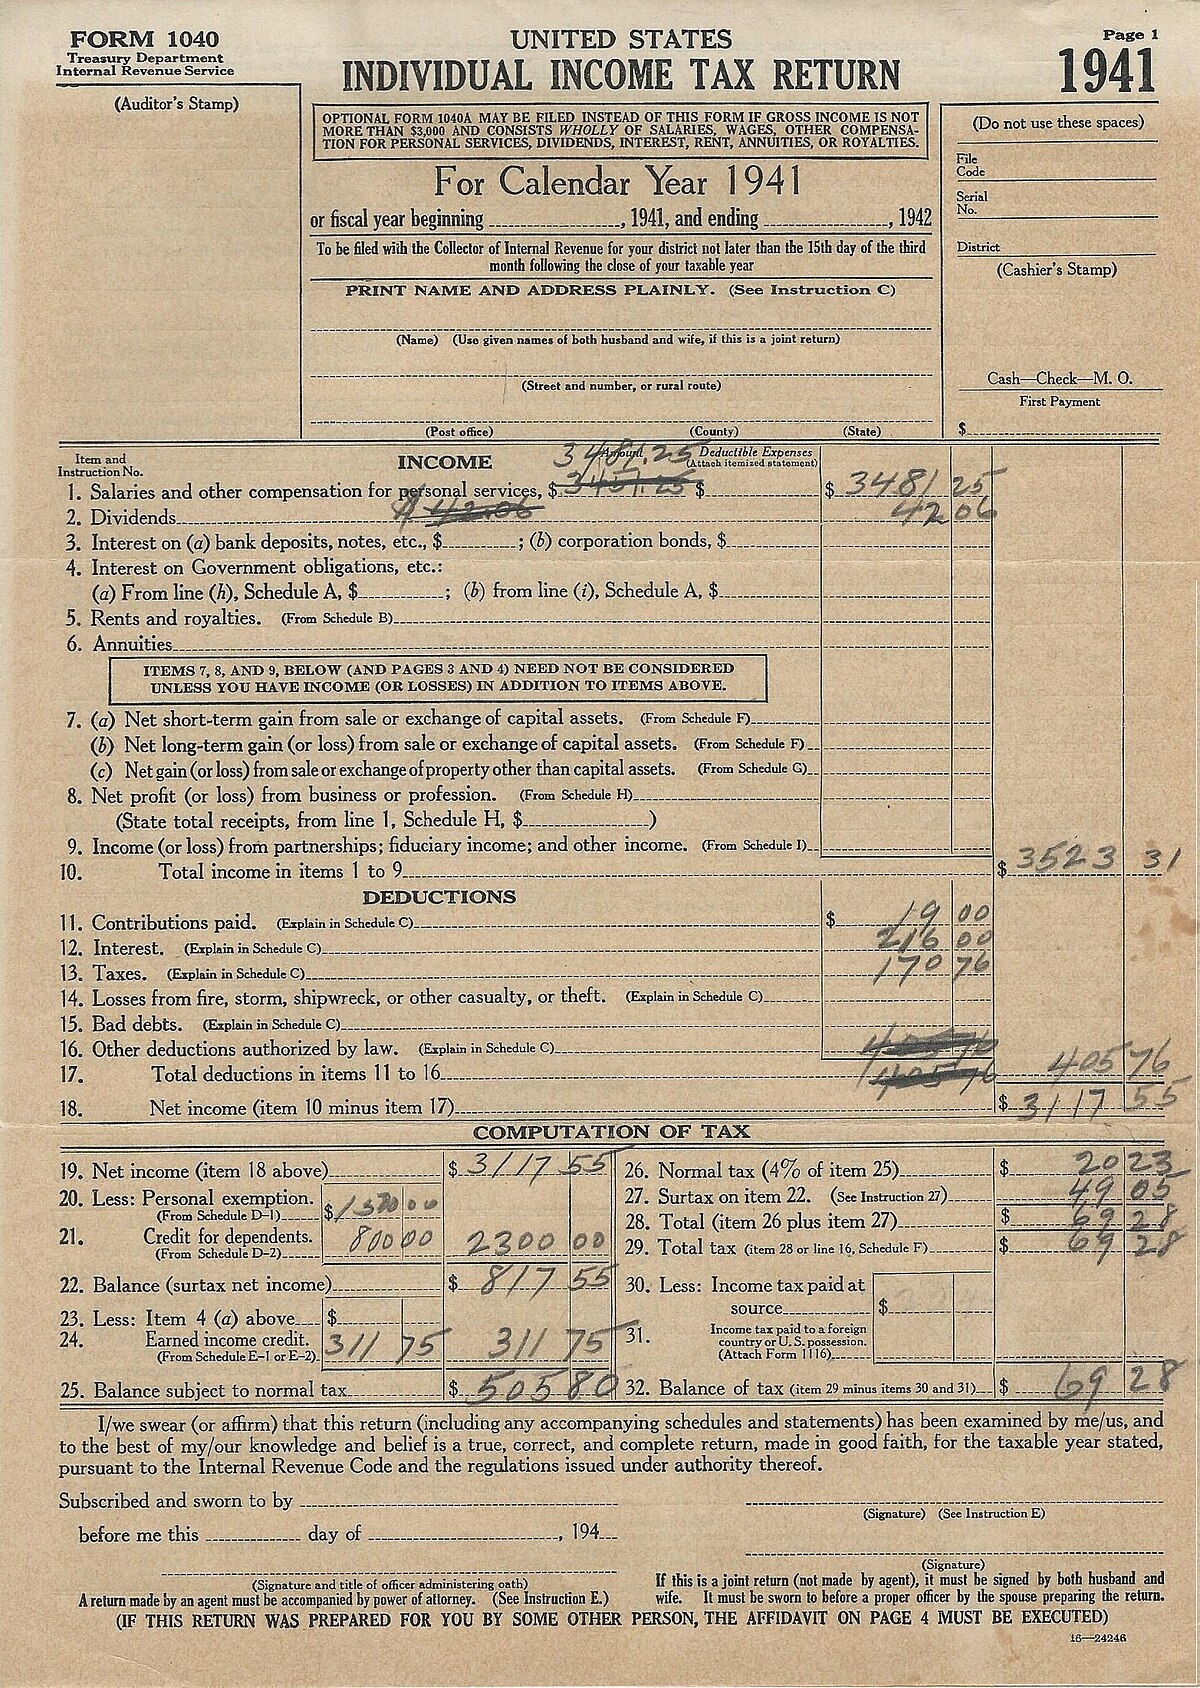 FORM 1040
Treasury Department
Internal Revenue Service
(Auditor's Stamp)
UNITED STATES
INDIVIDUAL INCOME TAX RETURN
Page 1
1941
OPTIONAL FORM 1040A MAY BE FILED INSTEAD OF THIS FORM IF GROSS INCOME IS NOT
MORE THAN $3,000 AND CONSISTS WHOLLY OF SALARIES, WAGES, OTHER COMPENSA-
TION FOR PERSONAL SERVICES, DIVIDENDS, INTEREST, RENT, ANNUITIES, OR ROYALTIES.
For Calendar Year 1941
or fiscal year beginning , 1941, and ending , 1942
To be filed with the Collector of Internal Revenue for your district not later than the 15th day of the third
month following the close of your taxable year
PRINT NAME AND ADDRESS PLAINLY. (See Instruction C)
(Name) (Use given names of both husband and wife, if this is a joint return)
(Street and number, or rural route)
(Post office) (County) (State)
(Do not use these spaces)
File
Code
Serial
No.
District
(Cashier's Stamp)
Cash—Check—M. O.
First Payment
$
Item and
Instruction No.
INCOME
3481.25 Amount Deductible Expenses
(Attach itemized statement)
1. Salaries and other compensation for personal services, $ $ $ 3481 25
2. Dividends $ 42.06 42 06
3. Interest on (a) bank deposits, notes, etc., $ ; (b) corporation bonds, $
4. Interest on Government obligations, etc.:
(a) From line (h), Schedule A, $ ; (b) from line (i), Schedule A, $
5. Rents and royalties. (From Schedule B)
6. Annuities
ITEMS 7, 8, AND 9, BELOW (AND PAGES 3 AND 4) NEED NOT BE CONSIDERED
UNLESS YOU HAVE INCOME (OR LOSSES) IN ADDITION TO ITEMS ABOVE.
7. (a) Net short-term gain from sale or exchange of capital assets. (From Schedule F)
(b) Net long-term gain (or loss) from sale or exchange of capital assets. (From Schedule F)
(c) Net gain (or loss) from sale or exchange of property other than capital assets. (From Schedule G)
8. Net profit (or loss) from business or profession. (From Schedule H)
(State total receipts, from line 1, Schedule H, $ )
9. Income (or loss) from partnerships; fiduciary income; and other income. (From Schedule I)
10. Total income in items 1 to 9 $ 3523 31
DEDUCTIONS
11. Contributions paid. (Explain in Schedule C) $ 19 00
12. Interest. (Explain in Schedule C) 216 00
13. Taxes. (Explain in Schedule C) 170 76
14. Losses from fire, storm, shipwreck, or other casualty, or theft. (Explain in Schedule C)
15. Bad debts. (Explain in Schedule C)
16. Other deductions authorized by law. (Explain in Schedule C) 405 76
17. Total deductions in items 11 to 16 405 76 405 76
18. Net income (item 10 minus item 17) $ 3117 55
COMPUTATION OF TAX
19. Net income (item 18 above) $ 3117 55
20. Less: Personal exemption.
(From Schedule D-1) $ 1500 00
21. Credit for dependents.
(From Schedule D-2) 800 00 2300 00
22. Balance (surtax net income) $ 817 55
23. Less: Item 4 (a) above $
24. Earned income credit.
(From Schedule E-1 or E-2) 311 75 311 75
25. Balance subject to normal tax $ 505 80
26. Normal tax (4% of item 25) $ 20 23
27. Surtax on item 22. (See Instruction 27) 49 05
28. Total (item 26 plus item 27) $ 69 28
29. Total tax (item 28 or line 16, Schedule F) $ 69 28
30. Less: Income tax paid at
source $
31. Income tax paid to a foreign
country or U.S. possession.
(Attach Form 1116)
32. Balance of tax (item 29 minus items 30 and 31) $ 69 28
I/we swear (or affirm) that this return (including any accompanying schedules and statements) has been examined by me/us, and
to the best of my/our knowledge and belief is a true, correct, and complete return, made in good faith, for the taxable year stated,
pursuant to the Internal Revenue Code and the regulations issued under authority thereof.
Subscribed and sworn to by
before me this day of , 194
(Signature and title of officer administering oath)
(Signature) (See Instruction E)
(Signature)
A return made by an agent must be accompanied by power of attorney. (See Instruction E.)
If this is a joint return (not made by agent), it must be signed by both husband and
wife. It must be sworn to before a proper officer by the spouse preparing the return.
(IF THIS RETURN WAS PREPARED FOR YOU BY SOME OTHER PERSON, THE AFFIDAVIT ON PAGE 4 MUST BE EXECUTED)
16—24246